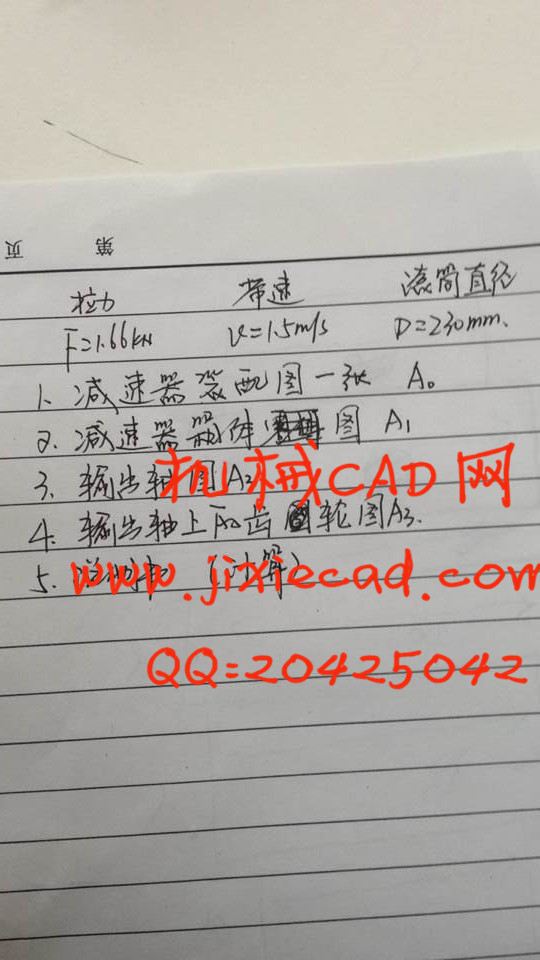 第 页
拉力 带速 滚筒直径
F=1.66kN V=1.5m/s D=230mm.
1. 减速器装配图一张 A0
2. 减速器箱体 图 A1
3. 输出轴图A2
机械CAD网
4. 输出轴上 齿 轮图A3.
5. (计算)
www.jixiecad.com
QQ=20425042